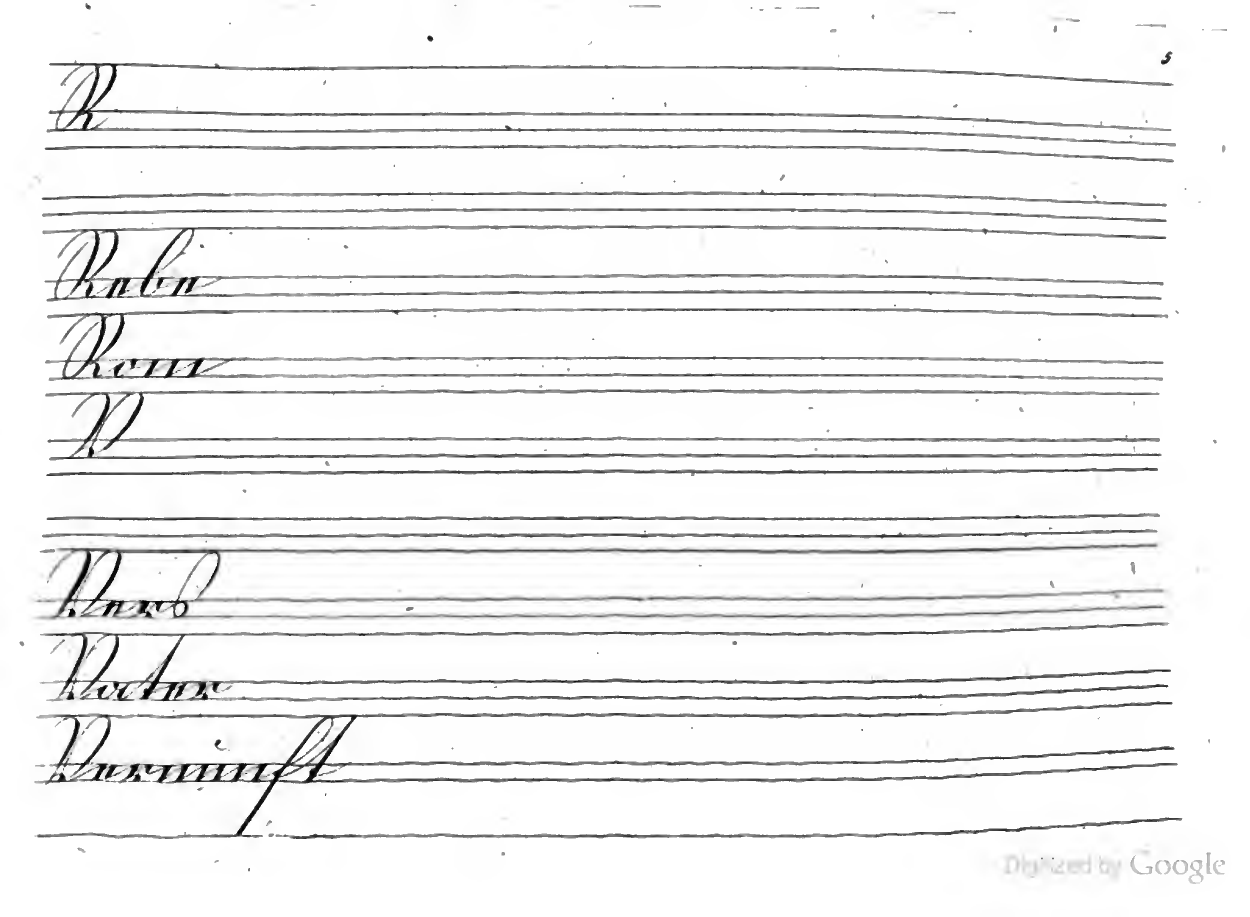 5
R
Rebe
Rom
V
Vers
Vater
Vernunft
Digitized by Google